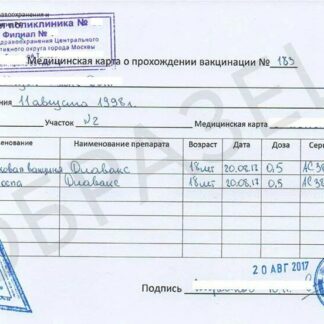 равоохранения и
поликлиника №
Филиал №
дравоохранения Центрального
тивного округа города Москвы
Медицинская карта о прохождении вакцинации № 185
ния 11 августа 1998г.
Участок №2 Медицинская карта
менование Наименование препарата Возраст Дата Доза Сери
ковая вакцина Флавакс 18 лет 20.08.17 0,5 АС38
оспа Флавакс 18 лет 20.08.17 0,5 АС38
ОБРАЗЕЦ
20 АВГ 2017
Подпись